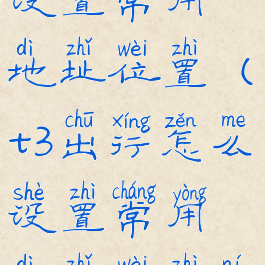 设置常用
dì zhǐ wèi zhì
地址位置(
chū xíng zěn me
t3出行怎么
shè zhì cháng yòng
设置常用
dì zhǐ wèi zhì